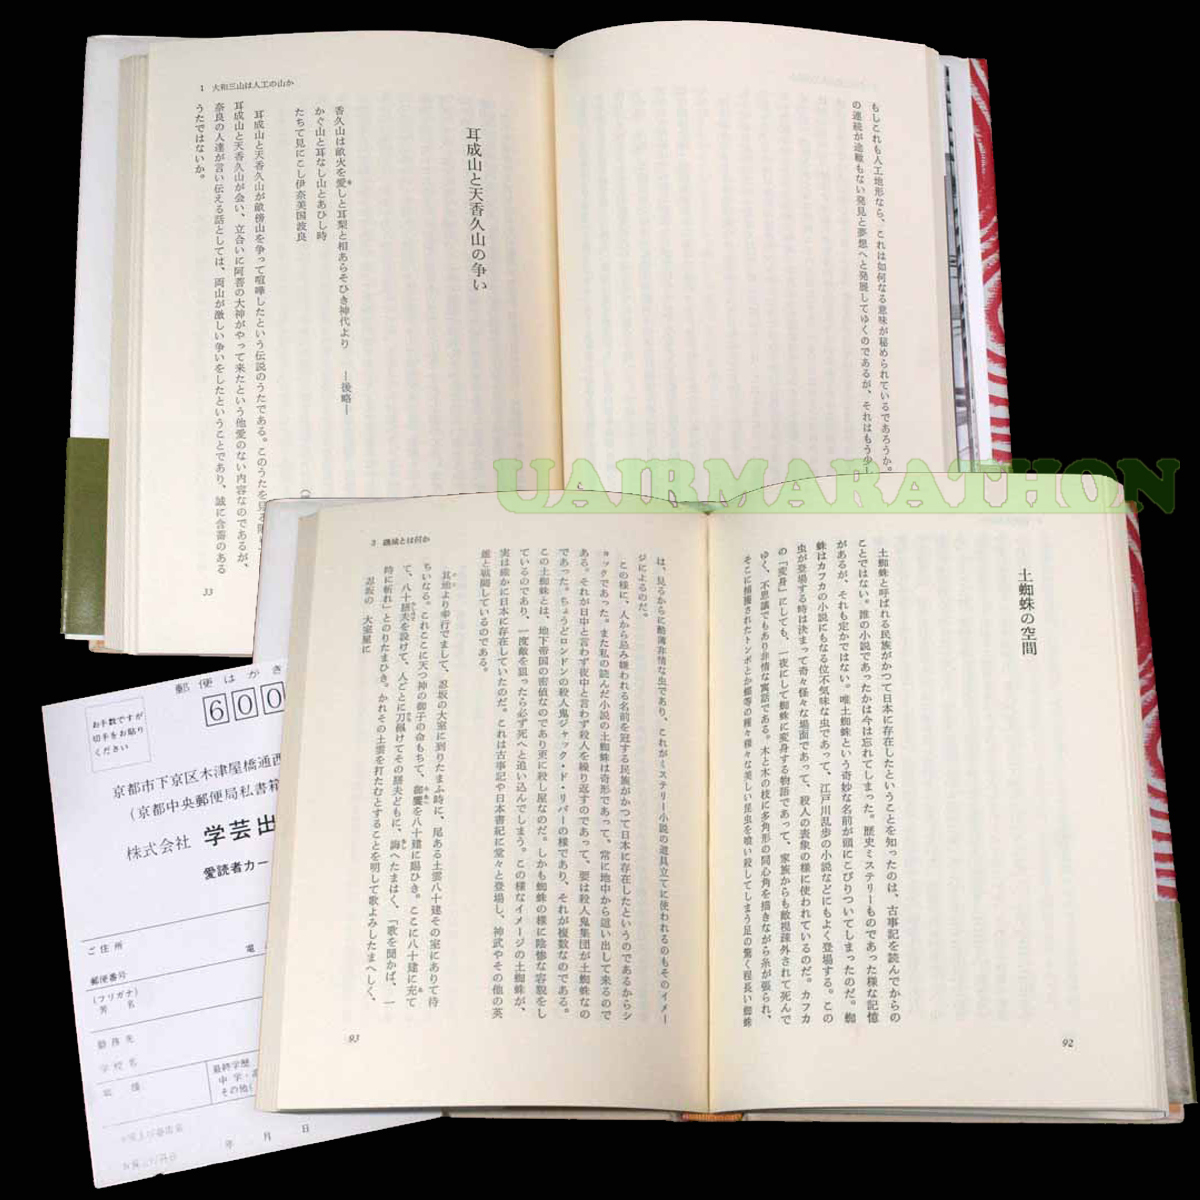 もしこれも人工地形なら、これは如何なる意味が秘められているであろうか。
の連続が途轍もない発見と夢想へと発展してゆくのであるが、それはもう少し
1 大和三山は人工の山か
耳成山と天香久山の争い
香久山は畝火を愛しと耳梨と相あらそひき神代より
かぐ山と耳なし山とあひし時
たちて見にこし伊奈美国波良
―後略―
耳成山と天香久山が畝傍山を争って喧嘩したという伝説のうたである。このうたを見る限り
耳成山と天香久山が会い、立合いに阿菩の大神がやって来たという他愛のない内容なのであるが、
奈良の人達が言い伝える話としては、両山が激しい争いをしたということであり、誠に含蓄のある
うたではないか。
33
UAIRMARATHON
土蜘蛛の空間
土蜘蛛と呼ばれる民族がかつて日本に存在したということを知ったのは、古事記を読んでからの
ことではない。誰の小説であったかは今は忘れてしまった。歴史ミステリーものであった様な記憶
があるが、それも定かではない。唯土蜘蛛という奇妙な名前が頭にこびりついてしまったのだ。蜘
蛛はカフカの小説にもなる位不気味な虫であって、江戸川乱歩の小説などにもよく登場する。この
虫が登場する時は決まって奇々怪々な場面であって、殺人の表象の様に使われているのだ。カフカ
の「変身」にしても、一夜にして蜘蛛に変身する物語であって、家族からも敵視疎外されて死んで
ゆく、不思議でもあり非情な寓話である。木と木の枝に多角形の同心角を描きながら糸が張られ、
そこに捕獲されたトンボとか蝶等の種々様々な美しい昆虫を喰い殺してしまう足の驚く程長い蜘蛛
92
3 磯城とは何か
は、見るからに酷薄非情な虫であり、これがミステリー小説の道具立てに使われるのもそのイメー
ジによるのだ。
この様に、人から忌み嫌われる名前を冠する民族がかつて日本に存在したというのであるからシ
ョックであった。また私の読んだ小説の土蜘蛛は奇形であって、常に地中から這い出して来るので
ある。それが日中と言わず夜中と言わず殺人を繰り返すのであって、要は殺人鬼集団が土蜘蛛なの
であった。ちょうどロンドンの殺人鬼ジャック・ド・リパーの様であり、それが複数なのである。
この土蜘蛛とは、地下帝国の密偵なのであり更に殺し屋なのだ。しかも蜘蛛の様に陰惨な容貌をし
ているのであり、一度敵を狙ったら必ず死へと追い込んでしまう。この様なイメージの土蜘蛛が、
実は確かに日本に存在していたのだ。これは古事記や日本書記に堂々と登場し、神武やその他の英
雄と戦闘しているのである。
其地より幸行でまして、忍坂の大室に到りたまふ時に、尾ある土雲八十建その室にありて待
ちいなる。これここに天つ神の御子の命もちて、御饗を八十建に賜ひき。ここに八十建に充て
て、八十膳夫を設けて、人ごとに刀佩けてその膳夫どもに、誨へたまはく、「歌を聞かば、一
時に斬れ」とのりたまひき。かれその土雲を打たむとすることを明して歌よみしたまへしく、
忍坂の 大室屋に
93
郵便はがき
600
お手数ですが
切手をお貼り
ください
京都市下京区木津屋橋通西
（京都中央郵便局私書箱
株式会社 学芸出
愛読者カー
ご住所
電
郵便番号
（フリガナ）
芳 名
勤務先
学校名
最終学歴
中学・高
その他（
年 月 日